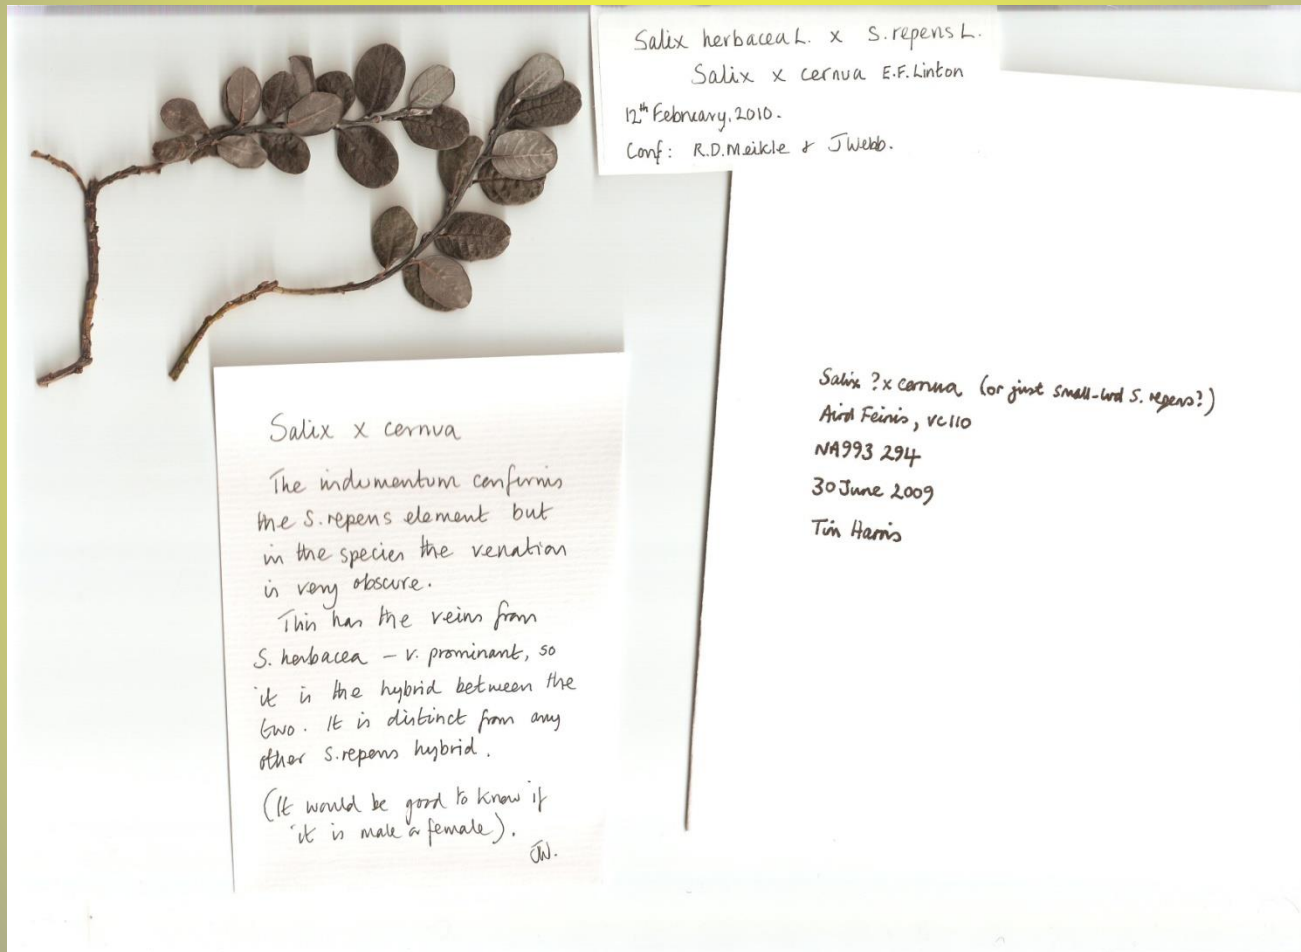 Salix herbacea L. x S. repens L.
Salix x cernua E.F. Linton
12th February, 2010.
Conf: R.D. Meikle & J Webb.
Salix x cernua
The indumentum confirms
the S. repens element but
in the species the venation
is very obscure.
This has the veins from
S. herbacea – v. prominant, so
it is the hybrid between the
two. It is distinct from any
other S. repens hybrid.
(It would be good to know if
it is male or female).
JW.
Salix ?x cernua (or just small-lvd S. repens?)
Aird Feinis, vc110
NA993 294
30 June 2009
Tim Harris